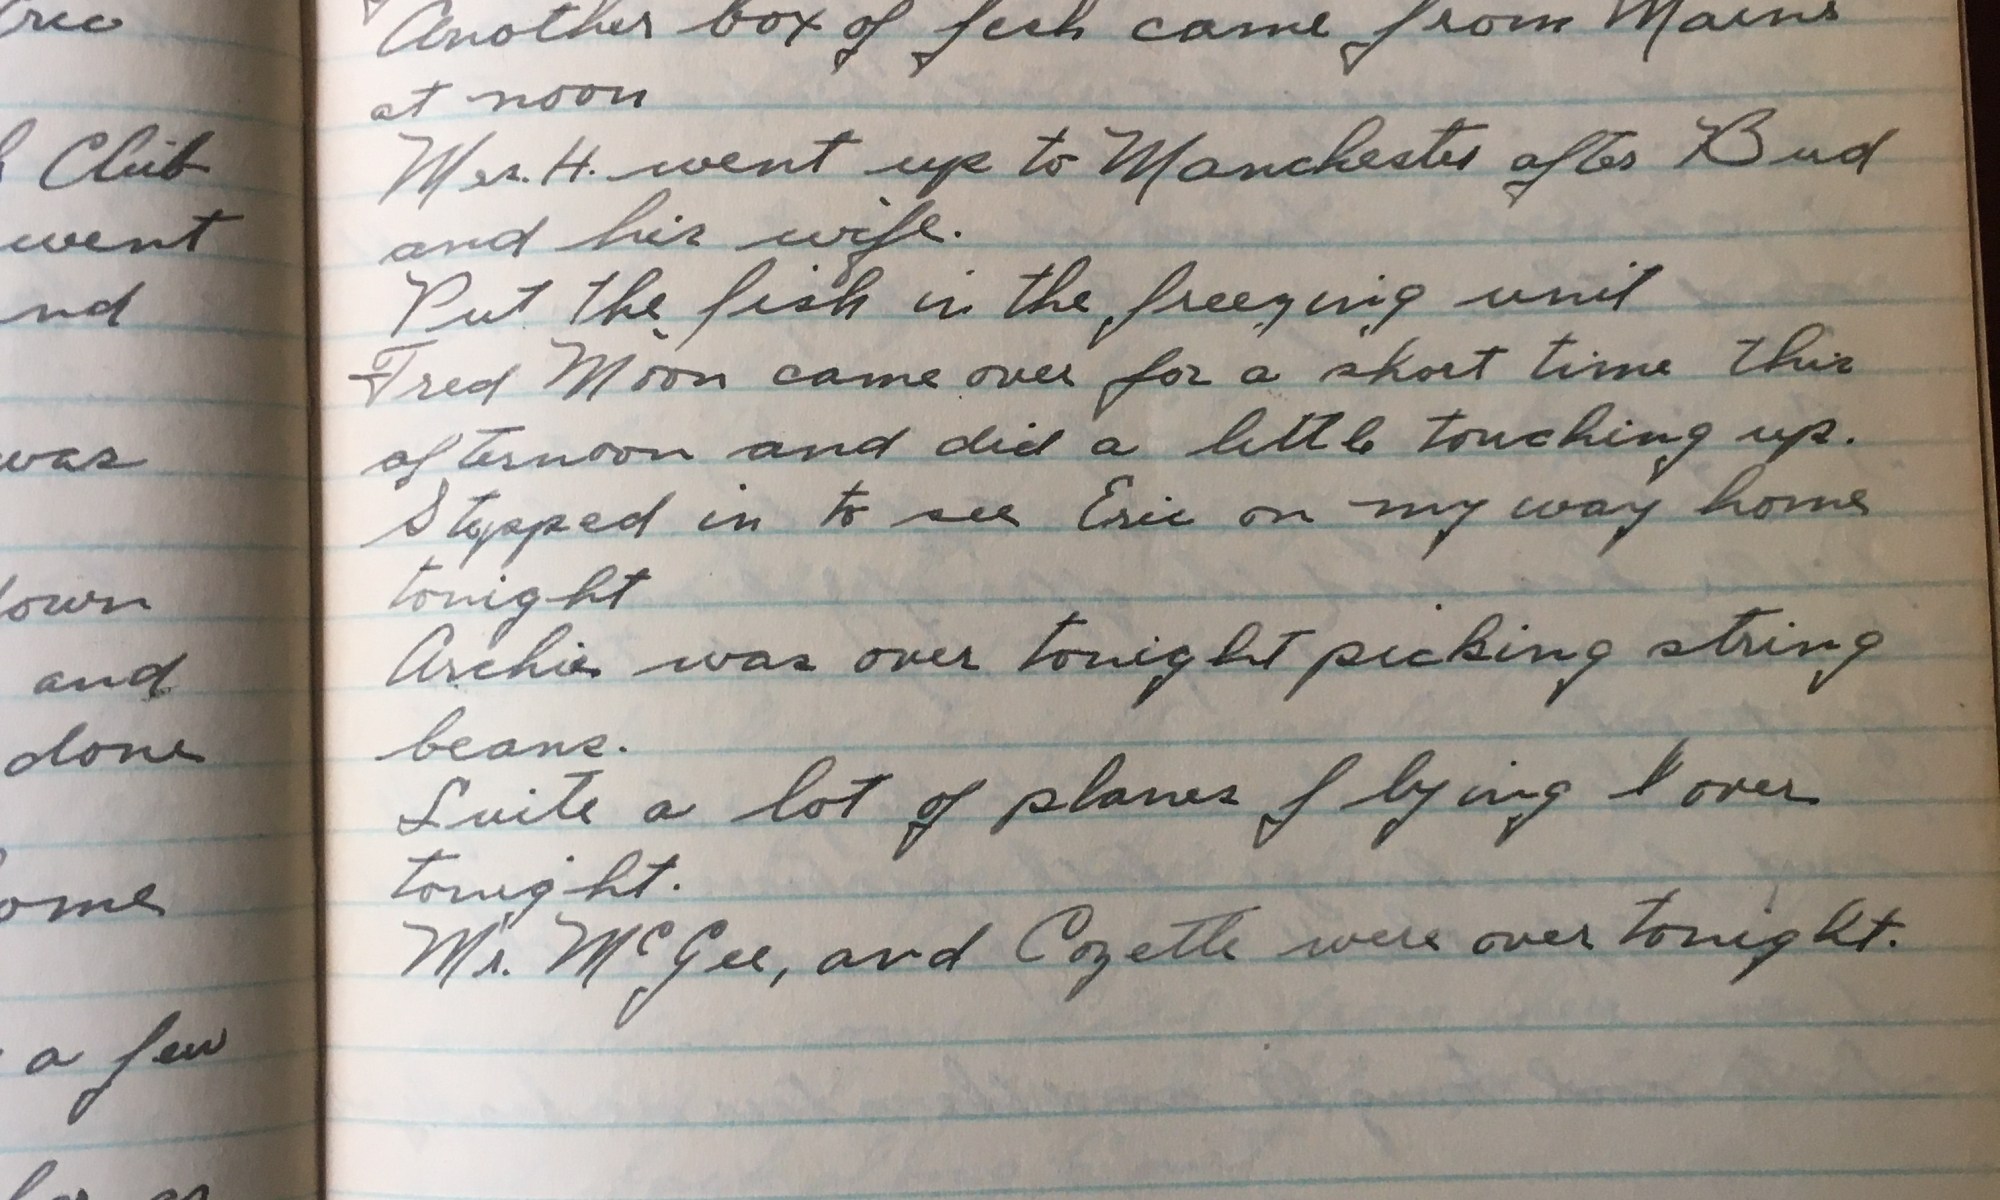 ric
Club
went
nd
was
down
and
done
ome
a few
Another box of fish came from Maine
at noon
Mrs. H. went up to Manchester after Bud
and his wife.
Put the fish in the freezing unit
Fred Moon came over for a short time this
afternoon and did a little touching up.
Stopped in to see Eric on my way home
tonight
Archie was over tonight picking string
beans.
Quite a lot of planes flying over
tonight.
Mr. McGee, and Cozette were over tonight.